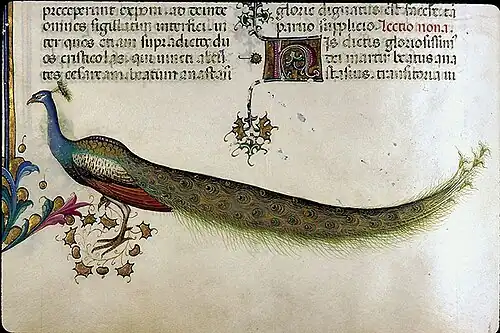 preceperant exponi. ac deinde
omnes sigillatim interfici. in
ter quos etiam supradicte du
os cristicolas. qui uincti abeis
tes cesaream abratum anastasi
glorie dignatus est facere. ta
Lectio nona.
is dictus gloriosissim
dei martir beatus ana
stasius. transitoria in